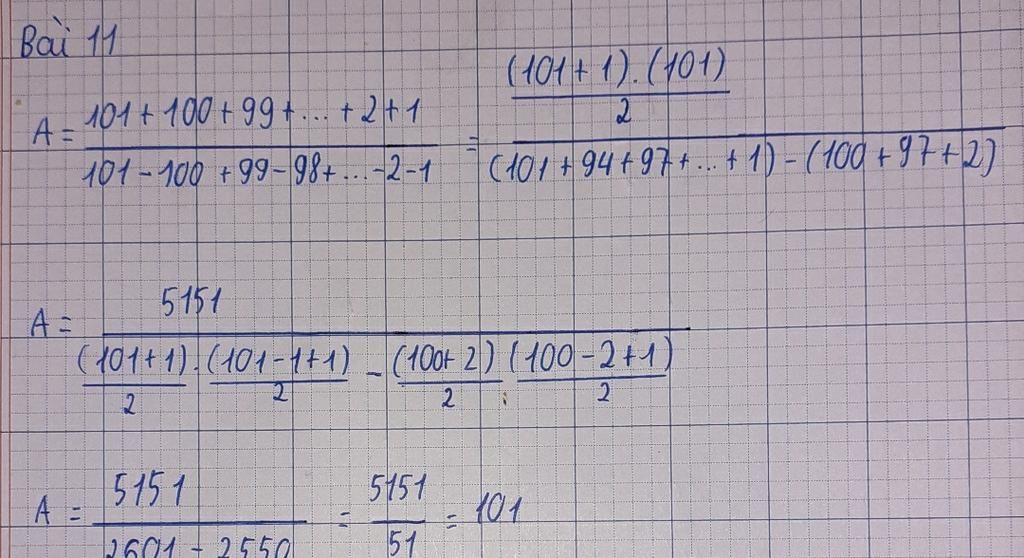 Bài 11
A = \frac{101+100+99+...+2+1}{101-100+99-98+...-2-1} = \frac{\frac{(101+1).(101)}{2}}{(101+94+97+...+1)-(100+97+2)}
A = \frac{5151}{\frac{(101+1)}{2}.\frac{(101-1+1)}{2}-\frac{(100+2)}{2}\frac{(100-2+1)}{2}}
A = \frac{5151}{2601-2550} = \frac{5151}{51} = 101